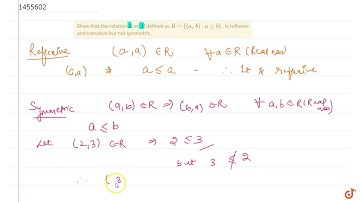 1455602
Show that the relation R in R defined as R = {(a, b) : a ≤ b}, is reflexive
and transitive but not symmetric.
Reflexive (a,a) ∈R ∀a∈R (Real nos)
(a,a) ⇒ a≤a - ∴ It is reflexive
Symmetric (a,b)∈R ⇒ (b,a) ∈R ∀ a,b ∈R (Real nos)
a ≤ b
Let (2,3) ∈R ⇒ 2 ≤ 3
but 3 ≰ 2
∴ (3